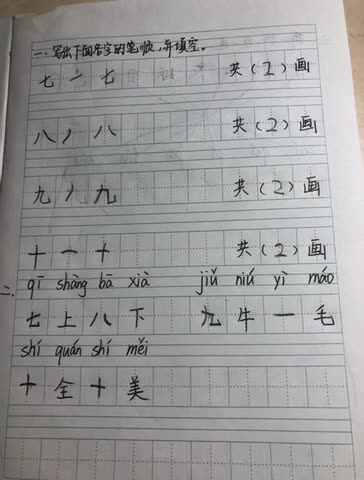 一、写出下面各字的笔顺,并填空。
七 ㇀ 七 共(2)画
八 丿 八 共(2)画
九 丿 九 共(2)画
十 一 十 共(2)画
二、qī shàng bā xià jiǔ niú yì máo
七 上 八 下 九 牛 一 毛
shí quán shí měi
十 全 十 美